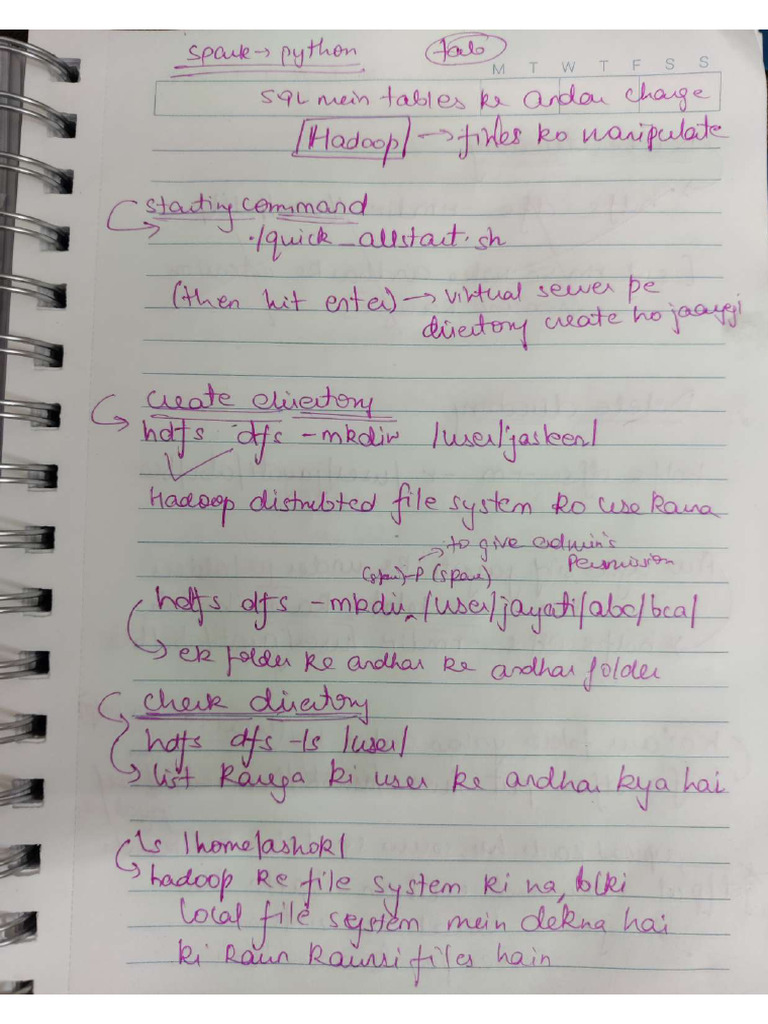 spark → python
tab
M T W T F S S
SQL mein tables ke andar change
Hadoop → files ko manipulate
starting command
./quick_allstart.sh
(then hit enter) → virtual server pe
directory create ho jaayegi
create directory
hdfs dfs -mkdir /user/jasleen/
Hadoop distributed file system ko use karna
→ to give admin's
Permission
(space)-P (space)
hdfs dfs -mkdir ^ /user/jayati/abc/bca/
→ ek folder ke andhar ke andhar folder
check directory
hdfs dfs -ls /user/
→ list karega ki user ke andhar kya hai
ls /home/ashok/
→ hadoop ke file system ki na, blki
local file system mein dekna hai
ki kaun kaunsi files hain